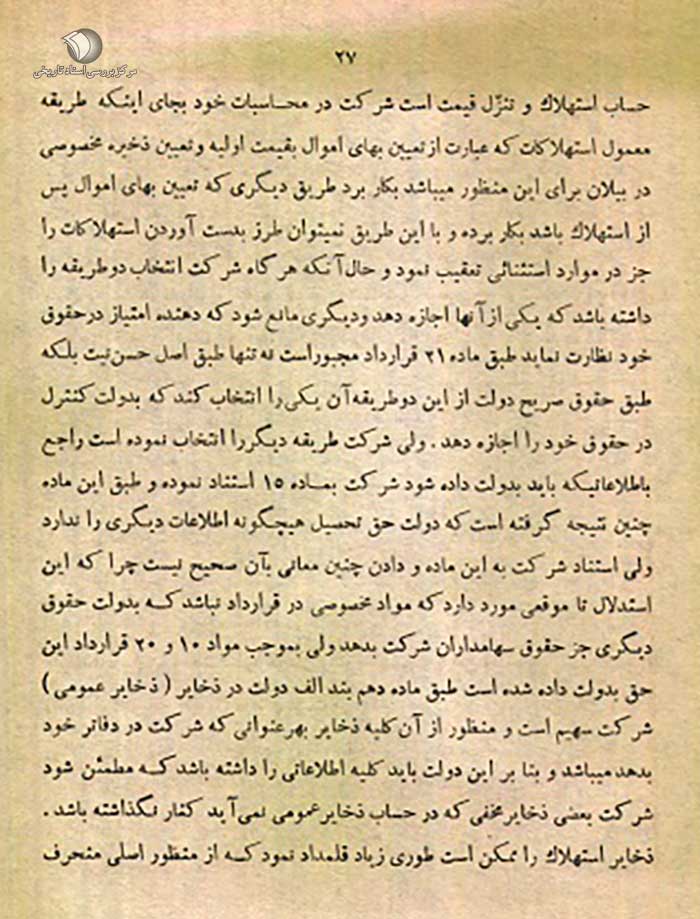 مرکز بررسی اسناد تاریخی
۲۷
حساب استهلاك و تنزّل قیمت است شرکت در محاسبات خود بجای اینکه طریقه
معمول استهلاکات که عبارت از تعیین بهای اموال بقیمت اولیه و تعیین ذخیره مخصوصی
در بیلان برای این منظور میباشد بکار برد طریق دیگری که تعیین بهای اموال پس
از استهلاك باشد بکار برده و با این طریق نمیتوان طرز بدست آوردن استهلاکات را
جز در موارد استثنائی تعقیب نمود و حال آنکه هر گاه شرکت انتخاب دو طریقه را
داشته باشد که یکی از آنها اجازه دهد و دیگری مانع شود که دهنده امتیاز در حقوق
خود نظارت نماید طبق ماده ۲۱ قرارداد مجبور است نه تنها طبق اصل حسن نیت بلکه
طبق حقوق صریح دولت از این دو طریقه آن یکی را انتخاب کند که بدولت کنترل
در حقوق خود را اجازه دهد . ولی شرکت طریقه دیگر را انتخاب نموده است راجع
باطلاعاتیکه باید بدولت داده شود شرکت بماده ۱۵ استناد نموده و طبق این ماده
چنین نتیجه گرفته است که دولت حق تحصیل هیچگونه اطلاعات دیگری را ندارد
ولی استناد شرکت به این ماده و دادن چنین معانی بآن صحیح نیست چرا که این
استدلال تا موقعی مورد دارد که مواد مخصوصی در قرارداد نباشد که بدولت حقوق
دیگری جز حقوق سهامداران شرکت بدهد ولی بموجب مواد ۱۰ و ۲۰ قرارداد این
حق بدولت داده شده است طبق ماده دهم بند الف دولت در ذخایر ( ذخایر عمومی )
شرکت سهیم است و منظور از آن کلیه ذخایر بهر عنوانی که شرکت در دفاتر خود
بدهد میباشد و بنا بر این دولت باید کلیه اطلاعاتی را داشته باشد که مطمئن شود
شرکت بعضی ذخایر مخفی که در حساب ذخایر عمومی نمی‌آید کنار نگذاشته باشد .
ذخایر استهلاك را ممکن است طوری زیاد قلمداد نمود که از منظور اصلی منحرف